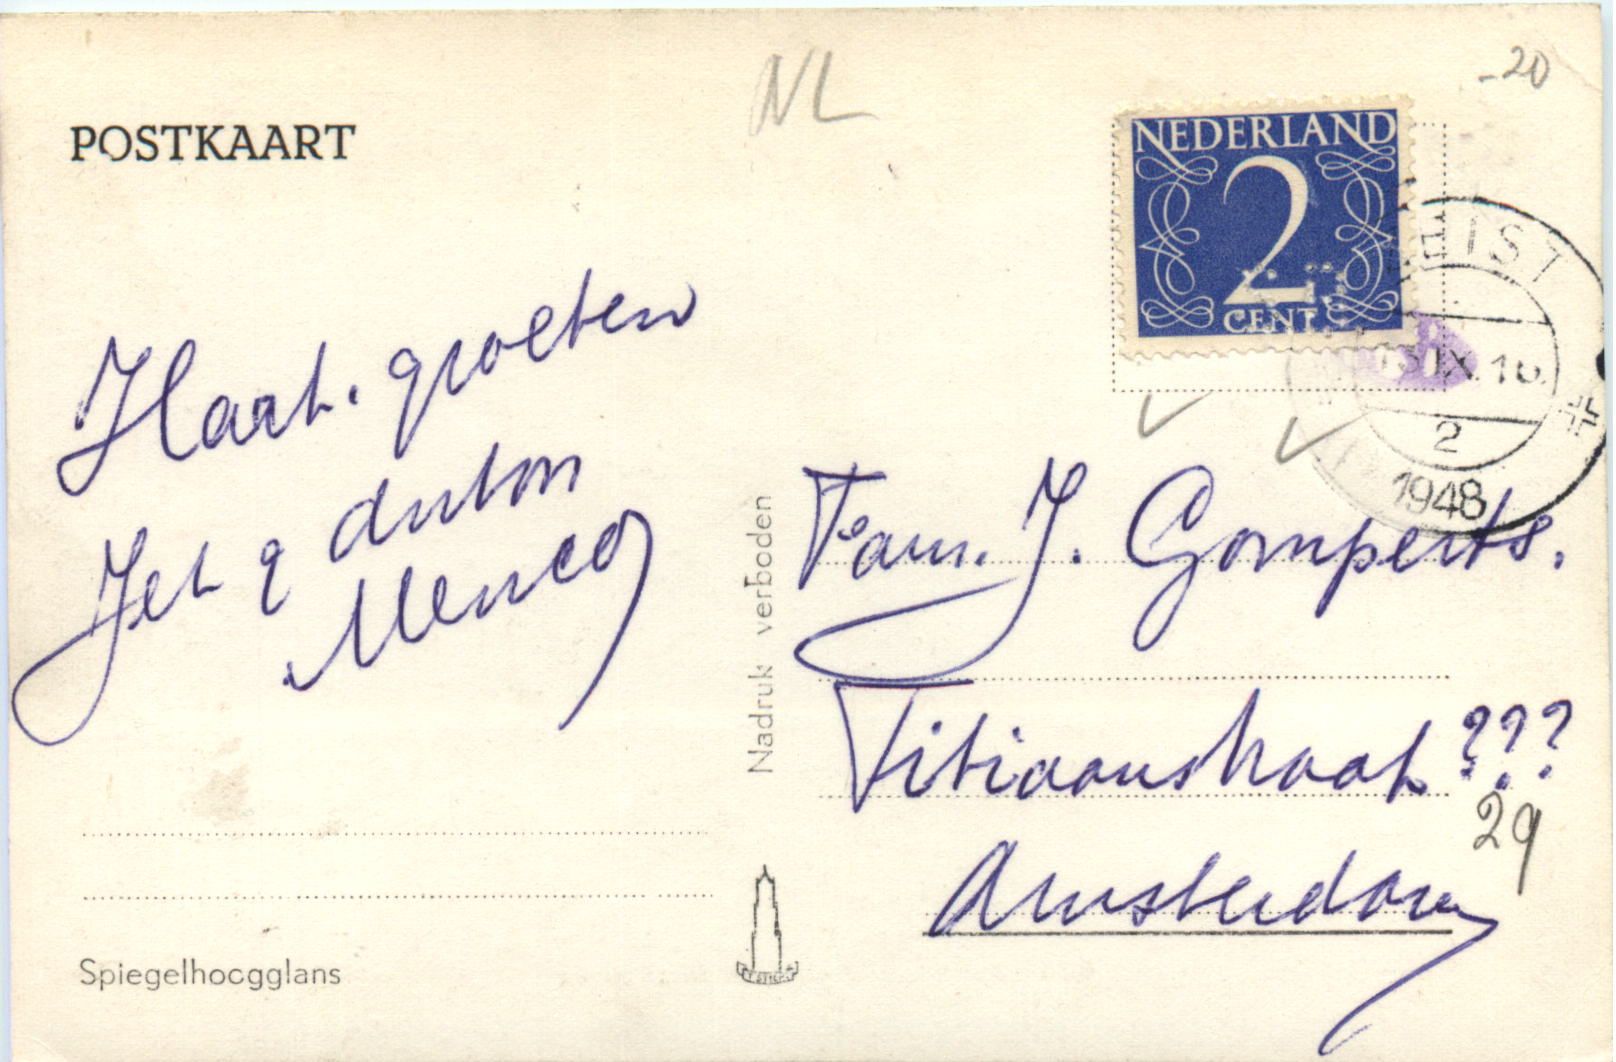 NL
-20
POSTKAART
NEDERLAND
2
CENT
IST
IX.16
2
1948
Hart. groeten
Jet & Anton
Menco
Nadruk verboden
Fam. J. Gomperts.
Titiaanstraat ???
29
Amsterdam
Spiegelhoogglans